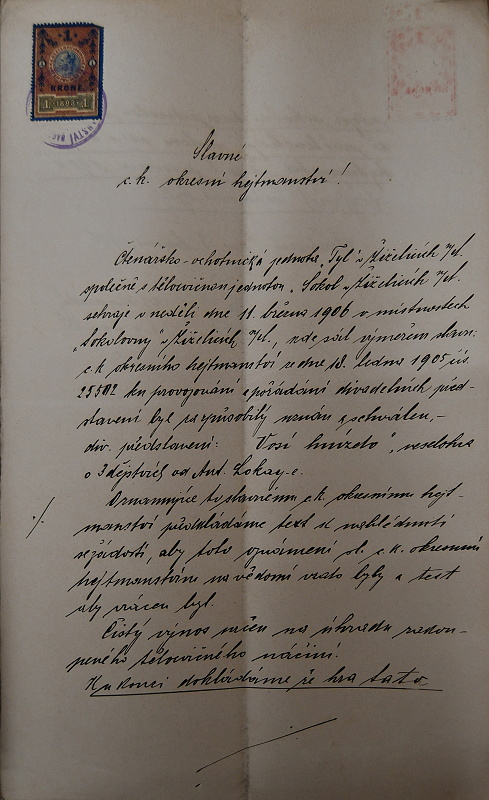 1
KRONE.
1 1898 1
Slavné
c. k. okresní hejtmanství!
Čtenářsko-ochotnická jednota "Tyl" v Žiželicích n/C.
společně s tělocvičnou jednotou "Sokol v Žiželicích n/C.
sehraje v neděli dne 11. března 1906 v místnostech
"Sokolovny" v Žiželicích n/C., kde sál výměrem slavn:
c. k. okresního hejtmanství ze dne 18. ledna 1905, čís.
25502 ku provozování a pořádání divadelních před-
stavení byl za způsobilý uznán a schválen,-
div. představení: Vosí hnízdo", veselohra
o 3 dějstvích od Ant. Lokay-e.
Oznamujíce to slavnému c. k. okresnímu hejt-
manství předkládáme text k nahlédnutí
se žádostí, aby toto oznámení sl. c. k. okresním
hejtmanstvím na vědomí vzato bylo a text
aby vrácen byl.
Čistý výnos určen na úhradu zakou-
peného tělocvičného náčiní.
Ku konci dokládáme že hra tato